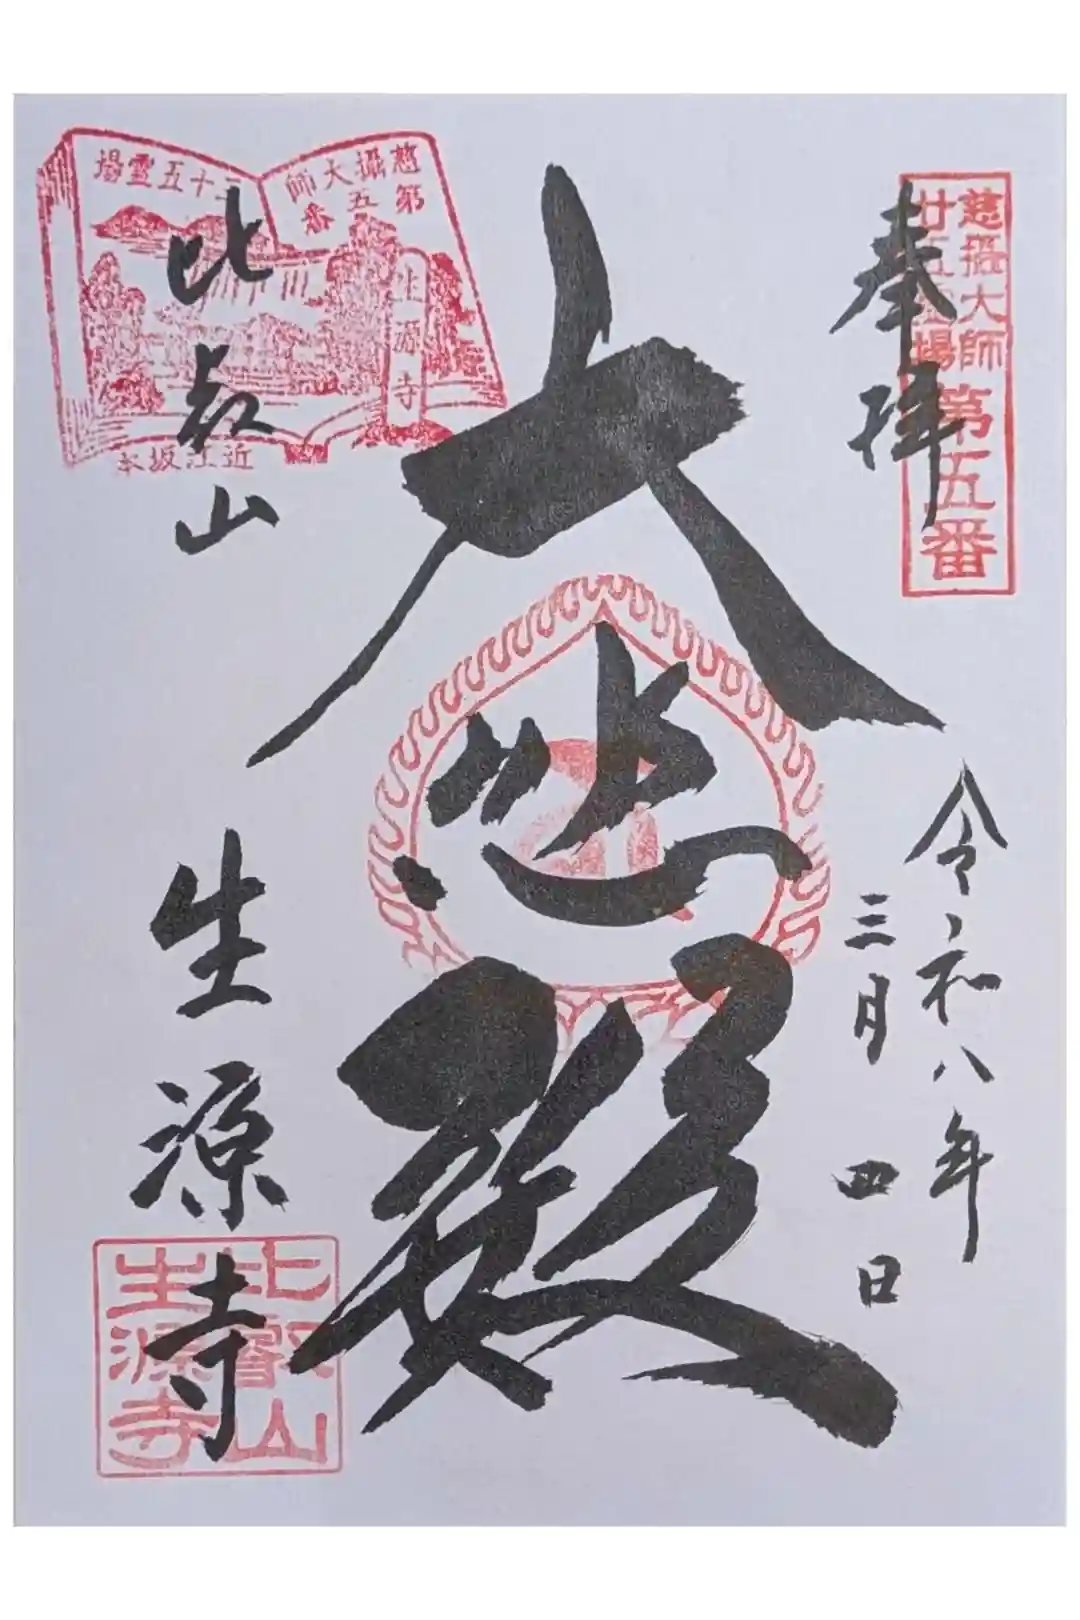 奉拝
慈攝大師
廿五霊場
第五番
令和八年
三月四日
大悲殿
慈攝大師二十五靈場
第五番
生源寺
近江坂本
比叡山
生源寺
比叡山
生源寺